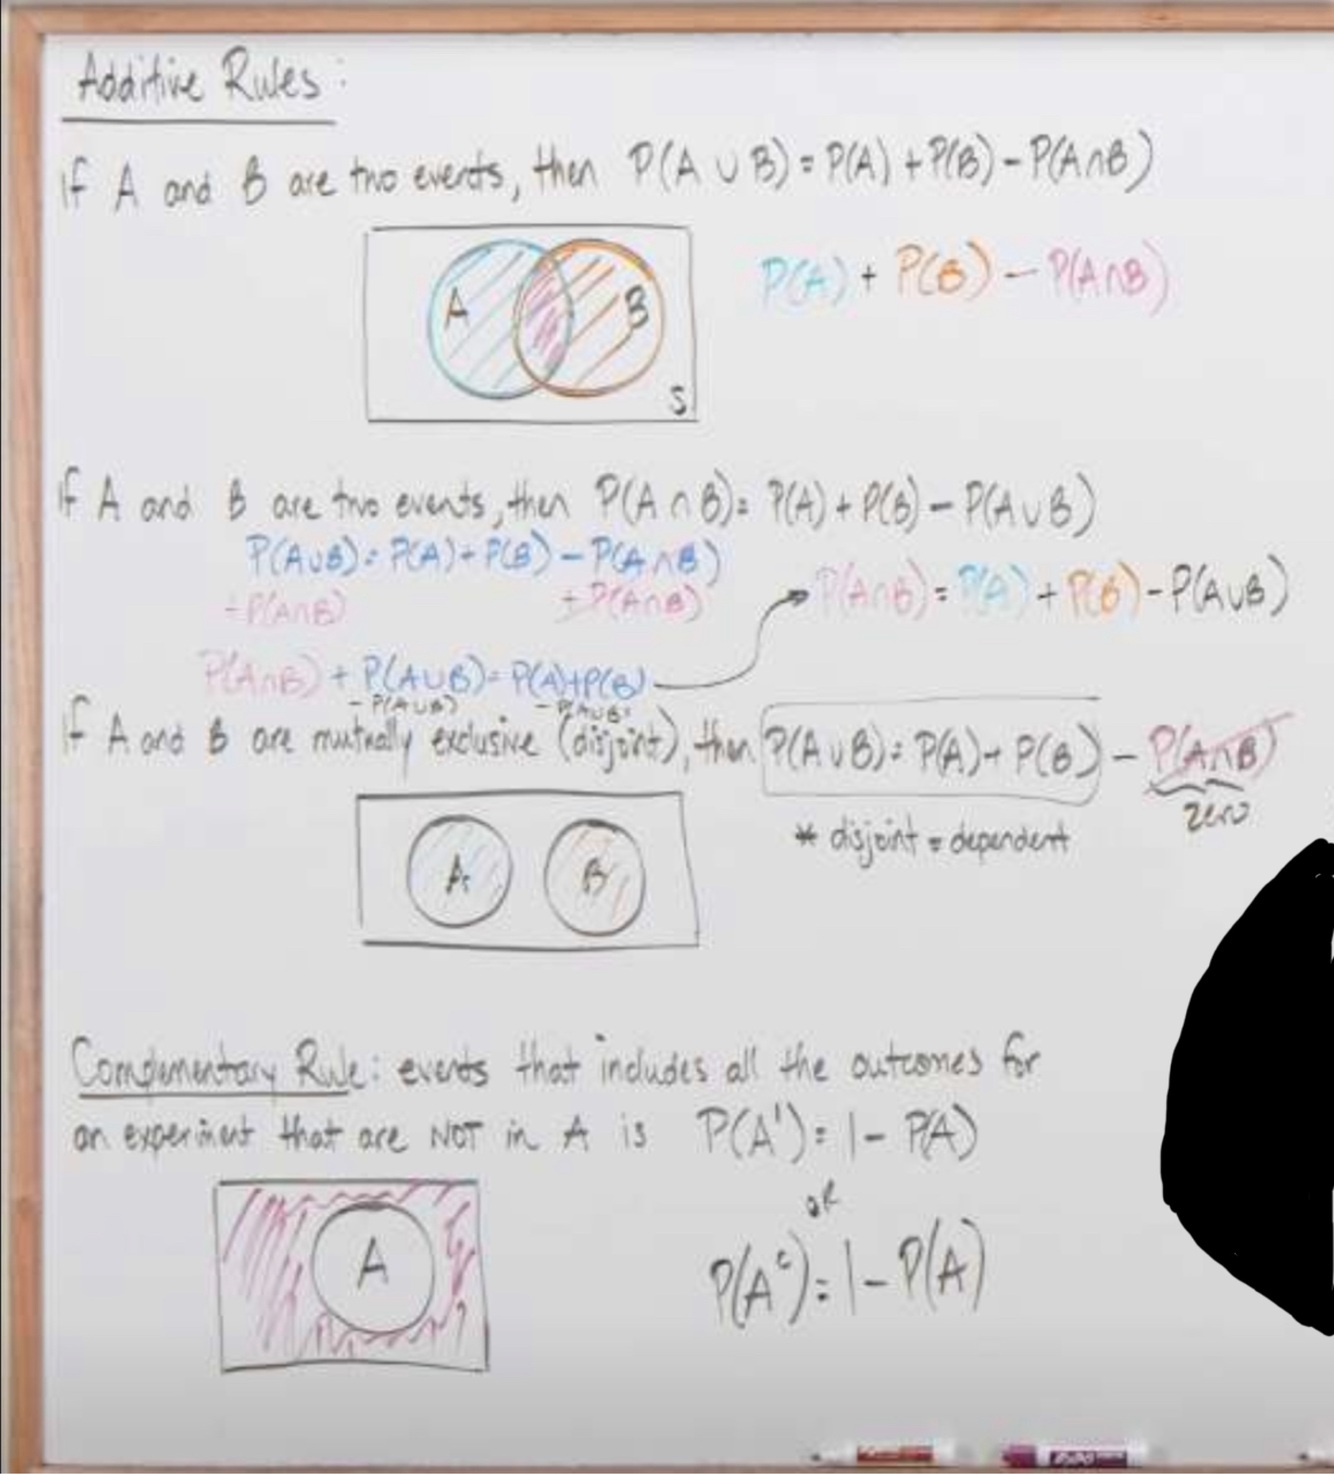 Additive Rules:
If A and B are two events, then P(A ∪ B) = P(A) + P(B) - P(A∩B)
A B S
P(A) + P(B) - P(A∩B)
If A and B are two events, then P(A ∩ B) = P(A) + P(B) - P(A∪B)
P(A∪B) = P(A) + P(B) - P(A∩B)
+P(A∩B) +P(A∩B)
P(A∩B) = P(A) + P(B) - P(A∪B)
P(A∩B) + P(A∪B) = P(A)+P(B)
-P(A∪B) -P(A∪B)
If A and B are mutually exclusive (disjoint), then P(A∪B) = P(A) + P(B) - P(A∩B)
zero
* disjoint = dependent
A B
Complementary Rule: events that includes all the outcomes for
an experiment that are NOT in A is P(A') = 1 - P(A)
OR
A
P(Aᶜ) = 1 - P(A)